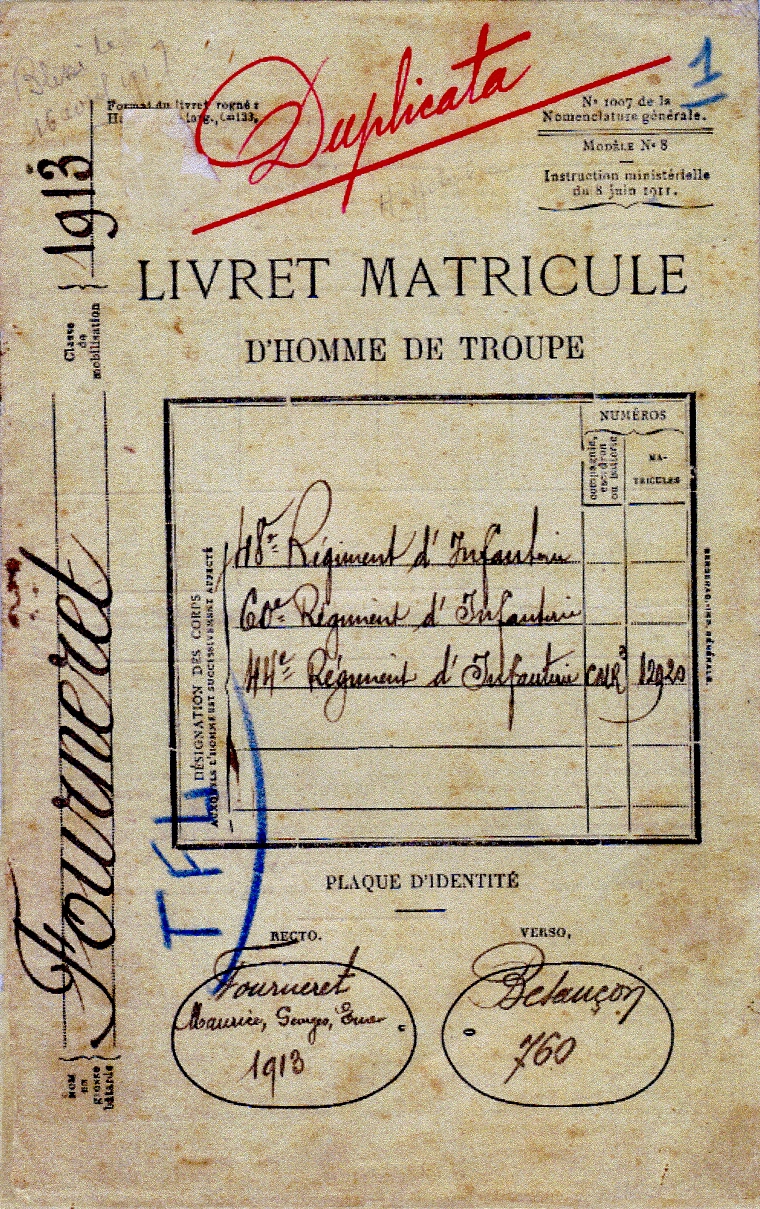 16 avril 1917
Duplicata
1
Format du livret rogné :
larg., 0m133,
No 1007 de la
Nomenclature générale.
MODÈLE No 8
Instruction ministérielle
du 8 juin 1911.
LIVRET MATRICULE
D'HOMME DE TROUPE
1913
Classe
de
mobilisation
Fourneret
NOM
en
grosse
bâtarde
NUMÉROS
compagnie,
escadron
ou batterie
MA-
TRICULES
DÉSIGNATION DES CORPS
AUXQUELS L'HOMME EST SUCCESSIVEMENT AFFECTÉ
48e Régiment d'Infanterie
60e Régiment d'Infanterie
44e Régiment d'Infanterie 12920
PLAQUE D'IDENTITÉ
RECTO.
Fourneret
Maurice, Georges,
1913
VERSO,
Besançon
760